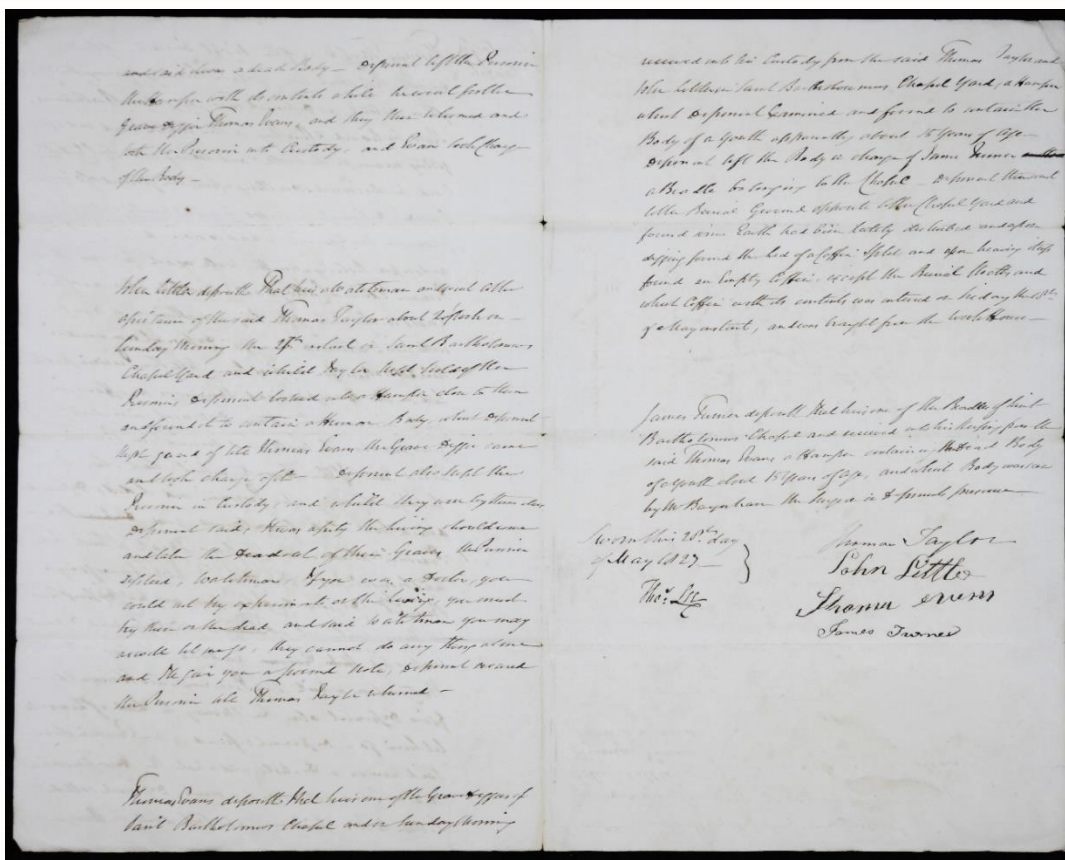 and said it was a dead Body — Deponent left the Prisoner
the Hamper with its contents while he went for the
Grave Digger Thomas Evans, and they then returned and
took the Prisoner into Custody, and Evans took Charge
of the Body —
John Little deposeth That he is a Watchman and went to the
assistance of the said Thomas Taylor about 2 o'Clock on
Sunday Morning the 27th instant in Saint Bartholomews
Chapel Yard and whilst Taylor kept hold of the
Prisoner Deponent looked into a Hamper close to them
and found it to contain a Human Body, which Deponent
kept guard of till Thomas Evans the Grave Digger came
and took charge of it — Deponent also kept the
Prisoner in Custody, and whilst they were by themselves
Deponent said, it was a pity the living should come
and take the Dead out of their Graves, the Prisoner
replied, Watchman, if you were a Doctor, you
could not try experiments on the living, you must
try them on the dead, and said Watchman you may
as well let me go, they cannot do any thing to me
and I'll give you a pound Note, Deponent
the Prisoner till Thomas Taylor returned —
Thomas Evans deposeth that he is one of the Grave Diggers of
Saint Bartholomews Chapel and on Sunday Morning
received into his Custody from the said Thomas Taylor and
John Little in Saint Bartholomews Chapel Yard, a Hamper
which Deponent Examined and found to contain the
Body of a Youth apparently about 15 Years of Age —
Deponent left the Body in charge of James Turner
a Beadle belonging to the Chapel — Deponent then went
to the Burial Ground opposite to the Chapel Yard and
found some Earth had been lately disturbed and upon
digging found the lid of a Coffin Split and upon
found an Empty Coffin, except the Burial Clothes, and
which Coffin with its contents was interred on
of May instant, and was brought from the Work House —
James Turner deposeth that he is one of the Beadles of Saint
Bartholomews Chapel and received into his keeping from the
said Thomas Evans a Hamper containing the Dead Body
of a Youth about 15 Years of Age, and which Body was seen
by Mr the Surgeon in Deponents presence —
Sworn this 28th day
of May 1827 —
Thos. Lee
Thomas Taylor
John Little
Thomas Evens
James Turner